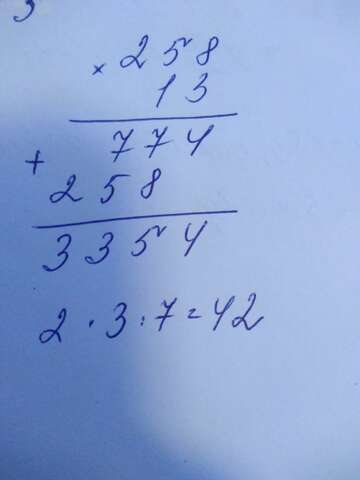 × 258
13
774
+
258
3354
2 · 3 · 7 = 42